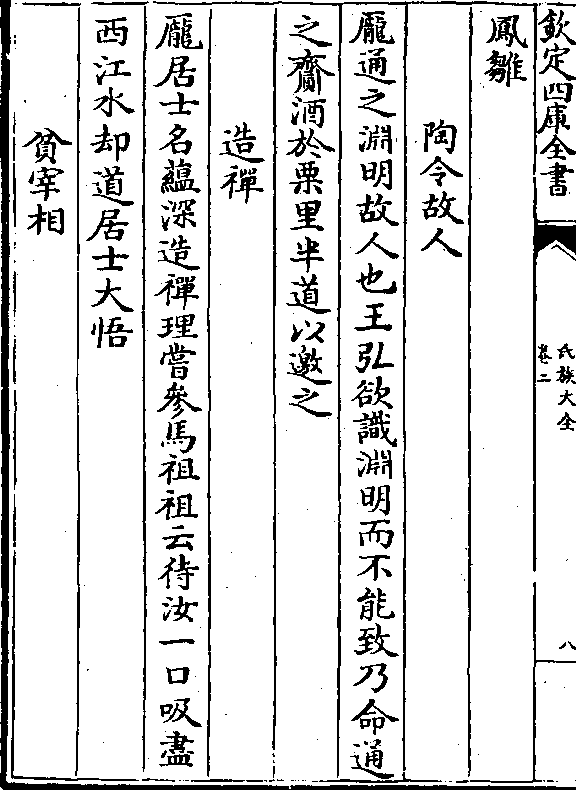 欽定四庫全書
氏族大全
卷二
八
鳳雛
陶令故人
龐通之淵明故人也王弘欲識淵明而不能致乃命通
之齎酒於栗里半道以邀之
造禪
龐居士名蘊深造禪理嘗參馬祖祖云待汝一口吸盡
西江水却道居士大悟
貧宰相